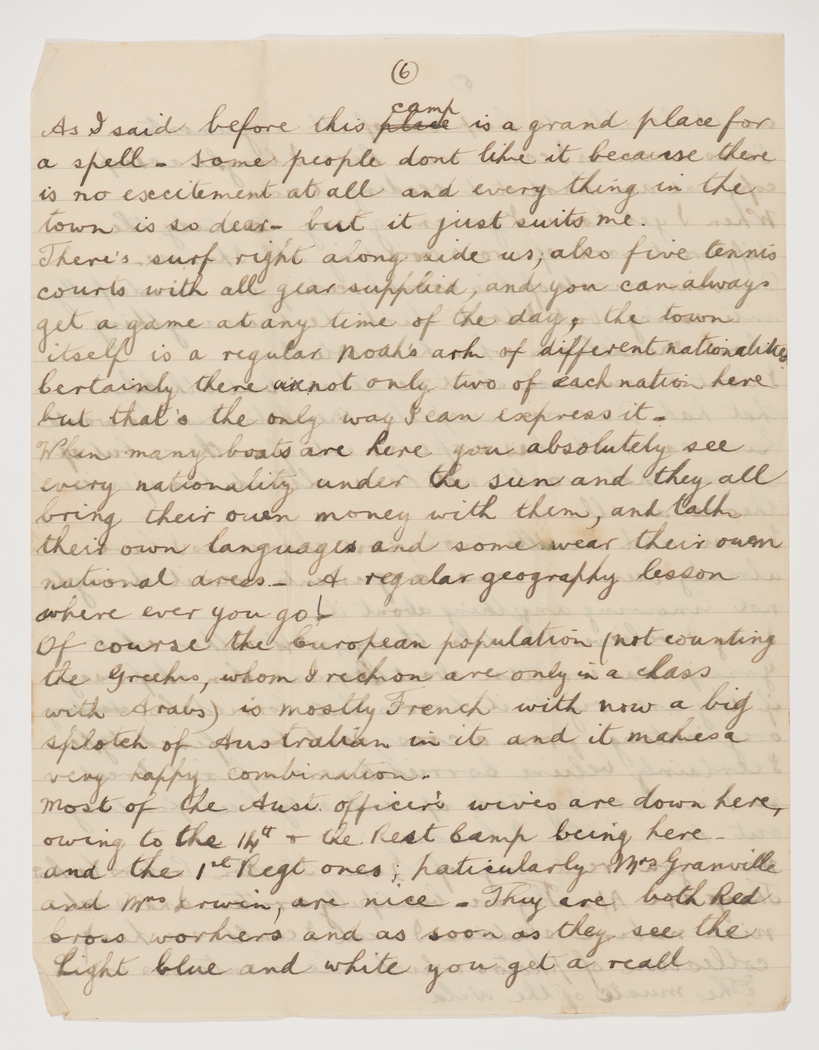 (6)
camp
As I said before this place is a grand place for
a spell - some people dont like it because there
is no excitement at all and every thing in the
town is so dear - but it just suits me.
There's surf right along side us; also five tennis
courts with all gear supplied, and you can always
get a game at any time of the day, the town
itself is a regular Noah's ark of different nationalities
Certainly there are not only two of each nation here
but that's the only way I can express it -
When many boats are here you absolutely see
every nationality under the sun and they all
bring their own money with them, and talk
their own languages and some wear their own
national dress - A regular geography lesson
where ever you go!
Of course the European population (not counting
the Greeks, whom I reckon are only in a class
with Arabs) is mostly French with now a big
splotch of Australian in it and it makes a
very happy combination.
Most of the Aust. officer's wives are down here,
owing to the 14th & the Rest Camp being here -
and the 1st Regt ones; paticularly Mrs Granville
and Mrs Irwin, are nice - They are both Red
Cross workers and as soon as they see the
light blue and white you get a reall